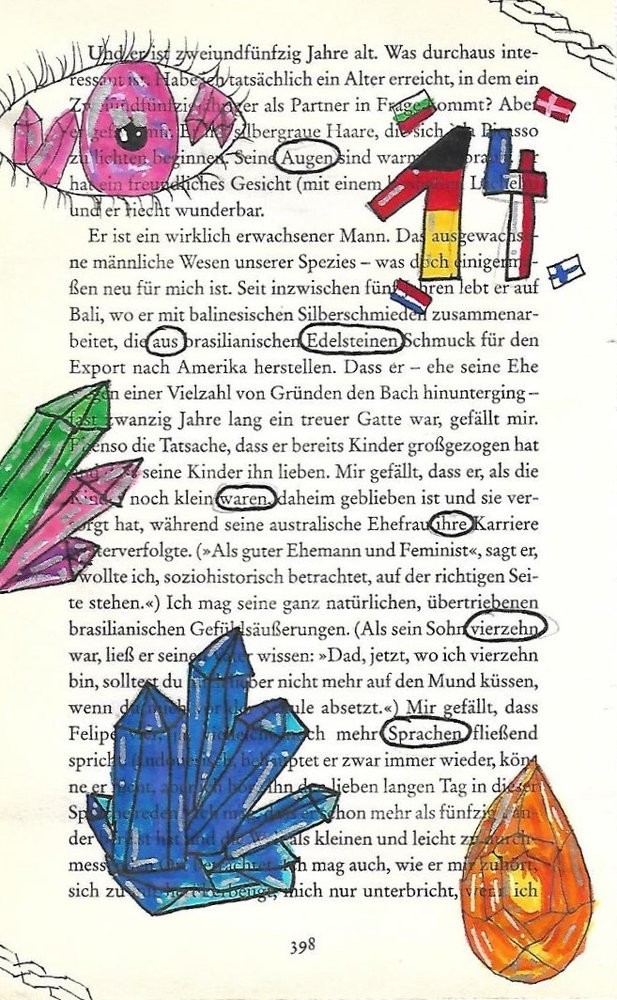 Und er ist zweiundfünfzig Jahre alt. Was durchaus inte-
ressant ist. Habe ich tatsächlich ein Alter erreicht, in dem ein
Zweiundfünfzigjähriger als Partner in Frage kommt? Aber
silbergraue Haare, die sich à la Picasso
zu lichten beginnen. Seine Augen sind warm
hat ein freundliches Gesicht (mit einem
und er riecht wunderbar.
Er ist ein wirklich erwachsener Mann. Das ausgewachse-
ne männliche Wesen unserer Spezies – was doch einigerma-
ßen neu für mich ist. Seit inzwischen fünf Jahren lebt er auf
Bali, wo er mit balinesischen Silberschmieden zusammenar-
beitet, die aus brasilianischen Edelsteinen Schmuck für den
Export nach Amerika herstellen. Dass er – ehe seine Ehe
wegen einer Vielzahl von Gründen den Bach hinunterging –
fast zwanzig Jahre lang ein treuer Gatte war, gefällt mir.
Ebenso die Tatsache, dass er bereits Kinder großgezogen hat
und seine Kinder ihn lieben. Mir gefällt, dass er, als die
Kinder noch klein waren, daheim geblieben ist und sie ver-
sorgt hat, während seine australische Ehefrau ihre Karriere
weiterverfolgte. (»Als guter Ehemann und Feminist«, sagt er,
»wollte ich, soziohistorisch betrachtet, auf der richtigen Sei-
te stehen.«) Ich mag seine ganz natürlichen, übertriebenen
brasilianischen Gefühlsäußerungen. (Als sein Sohn vierzehn
war, ließ er seinen Vater wissen: »Dad, jetzt, wo ich vierzehn
bin, solltest du mich lieber nicht mehr auf den Mund küssen,
wenn du mich vor der Schule absetzt.«) Mir gefällt, dass
Felipe vier, ja vielleicht noch mehr Sprachen fließend
spricht. (Indonesisch, behauptet er zwar immer wieder, kön-
ne er nicht, aber ich hör ihn den lieben langen Tag in dieser
Sprache reden.) Ich mag, dass er schon mehr als fünfzig Län-
der bereist hat und die Welt als kleinen und leicht zu durch-
messenden Ort betrachtet. Ich mag auch, wie er mir zuhört,
sich zu mir herüberbeugt, mich nur unterbricht, wenn ich
398
14